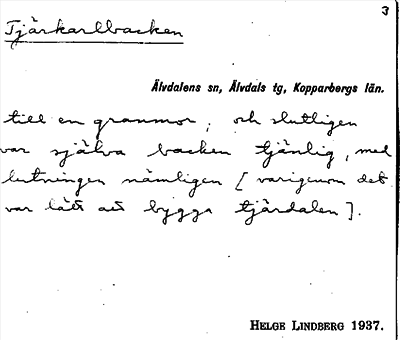 3
Tjärkarlbacken
Älvdalens sn, Älvdals tg, Kopparbergs län.
till en granmor, och slutligen
var själva backen tjänlig, med
lutningen nämligen [varigenom det
var lätt att bygga tjärdalen].
HELGE LINDBERG 1937.